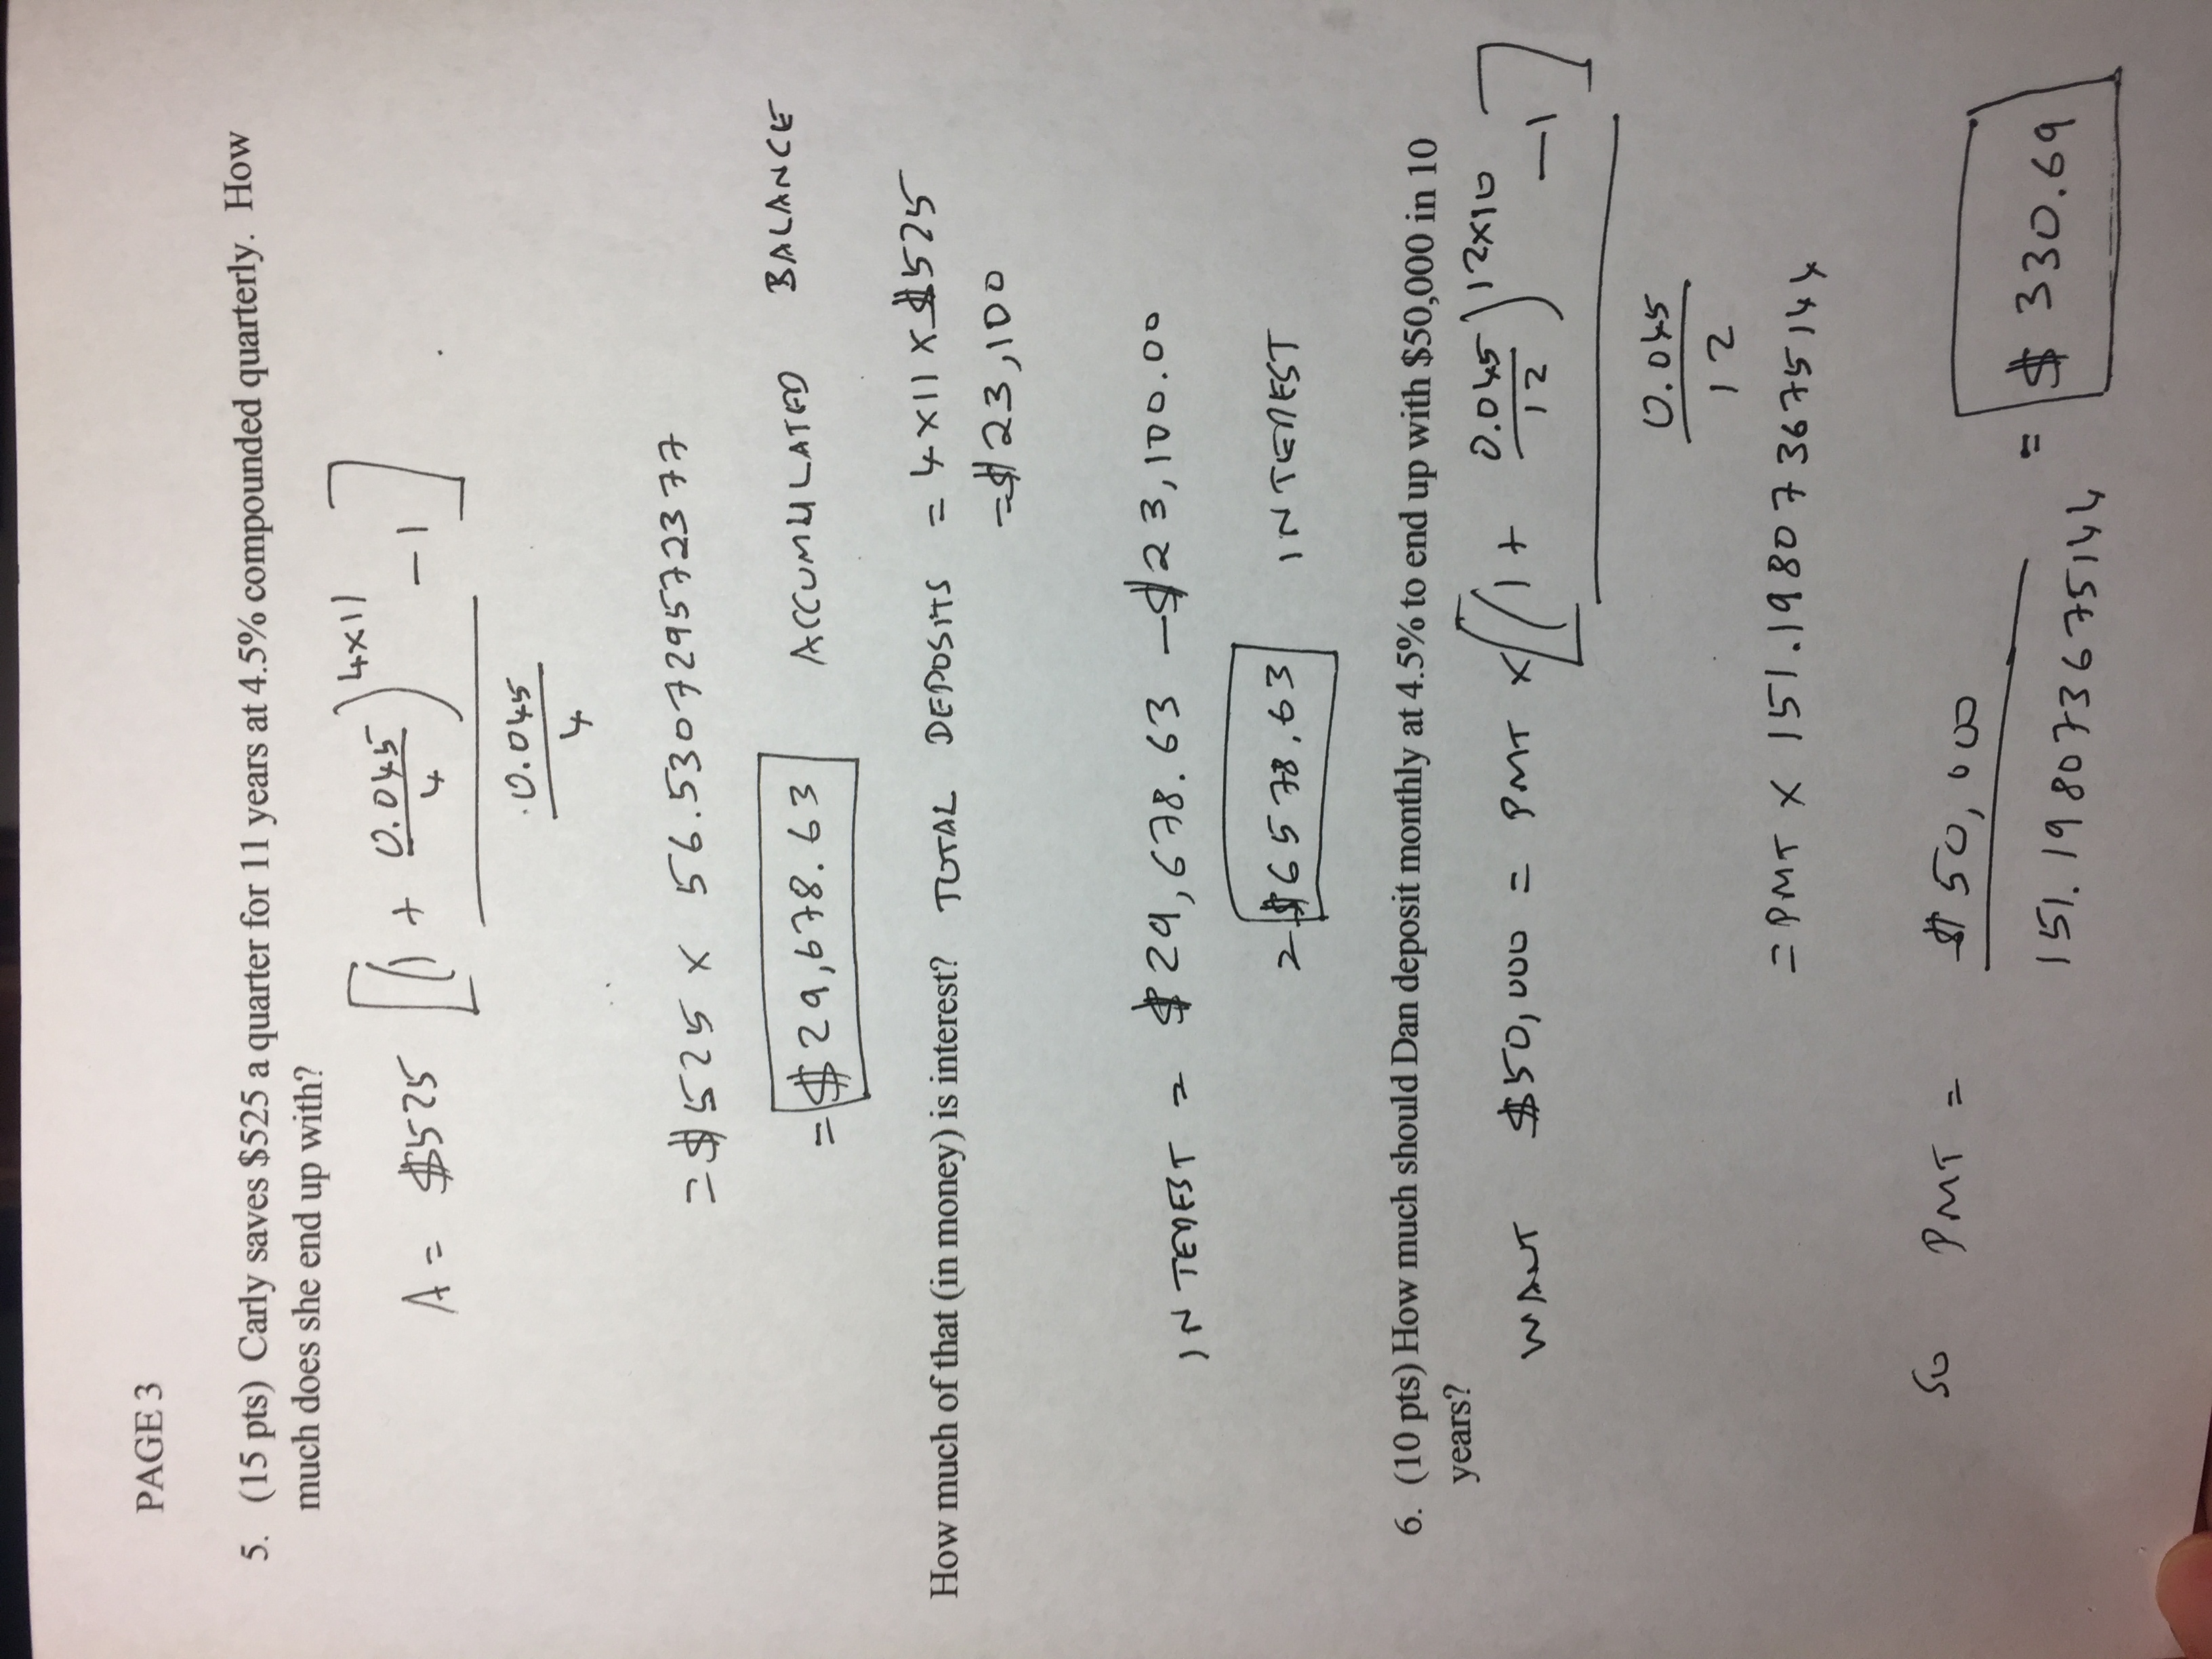 PAGE 3
5. (15 pts) Carly saves $525 a quarter for 11 years at 4.5% compounded quarterly. How
much does she end up with?
A = $525 [(1 + 0.045/4)^4×11 − 1]
0.045/4
= $525 × 56.53072957 2377
= $29,678.63 ACCUMULATED BALANCE
How much of that (in money) is interest? TOTAL DEPOSITS = 4×11×$525
= $23,100
INTEREST = $29,678.63 − $23,100.00
= $6578.63 INTEREST
6. (10 pts) How much should Dan deposit monthly at 4.5% to end up with $50,000 in 10
years?
WANT $50,000 = PMT × [(1 + 0.045/12)^12×10 − 1]
0.045/12
= PMT × 151.1980736751 44
SO PMT = $50,000 / 151.1980736751 44 = $330.69